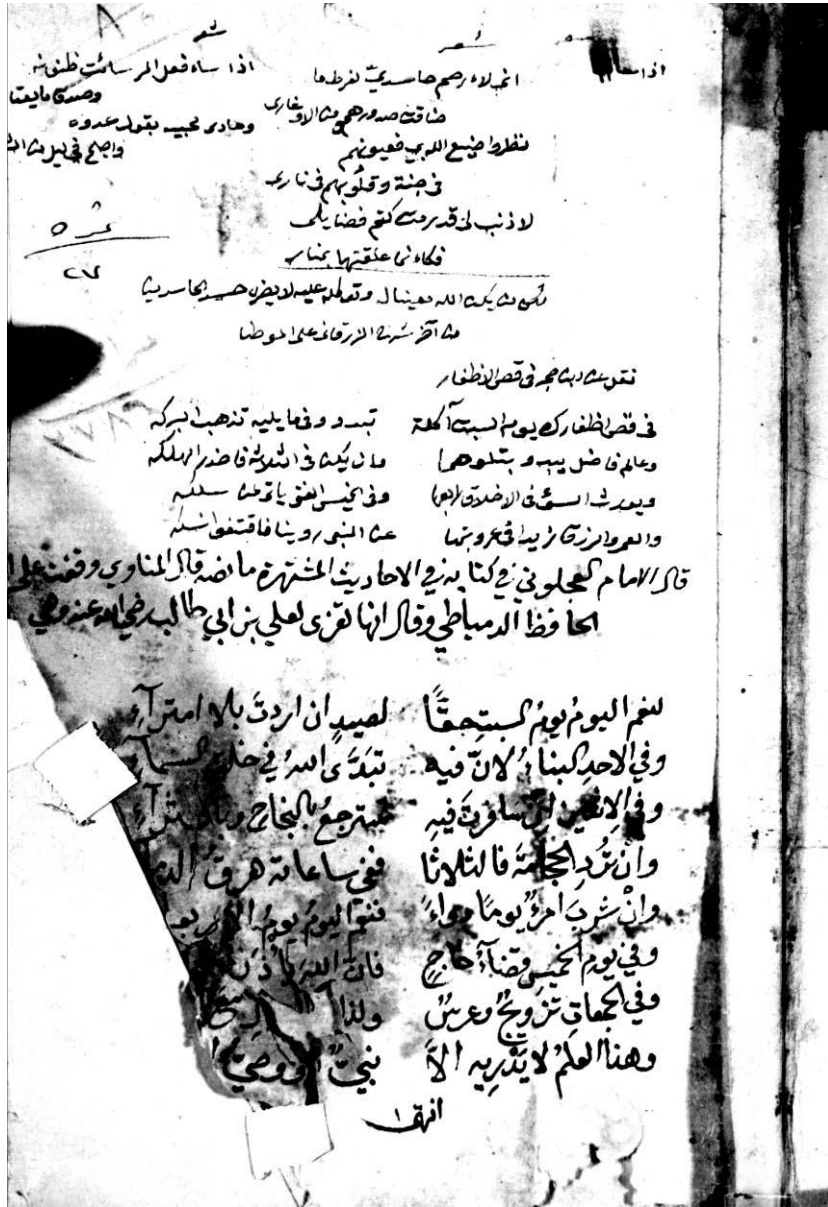 شعر
اذا ساء فعل المرء ساءت ظنونه
وصدق ما يعتا
وعادى محبيه بقول عدوه
واصبح في ليل من الش
شعر
اني لارحم حاسدي لفرط ما
ضاقت صدورهمو من الاوغارى
نظروا صنيع الله بي فعيونهم
في جنة وقلوبهم في نارى
لا ذنب لي قد رمت كتم فضايلى
فكانما علقتها بمنار
لكن من يكن الله معينا له وتوكله عليه لا يضره حسد الحاسدين
من آخر شرح الزرقاني على الموطا
نقل عن ابن حجر في قص الاظفار
في قص اظفارك يوم السبت آكلة تبدو وفيما يليه تذهب البركه
وعالم فاضل يبدو بتلوهما وان يكن في الثلاثا فاحذر الهلكه
ويورث السوء في الاخلاق رابعها وفي الخميس الغنى ياتي لمن سلكه
والعمر والرزق زيدا في عروبتها عن النبي روينا فاقتفوا نسكه
قال الامام العجلوني في كتابه في الاحاديث المشتهرة ما نصه قال المناوي وقفت على
الحافظ الدمياطي وقال انها تعزى لعلي بن ابي طالب رضي الله عنه وهي
لنعم اليومُ يومُ السبت حقًّا لصيدٍ ان اردتَ بلا امترآءِ
وفي الاحدِ البناءُ لانّ فيه تبدَّى اللهُ في خلق السمآء
وفي الاثنين ان سافرتَ فيهِ سترجعُ بالنجاح وبالثرآءِ
وانْ تُرِدِ الحجامةَ فالثلاثا ففي ساعاته هرقُ الدما
وانْ شربَ امرءٌ يومًا دواءً فنعم اليومُ يومُ الاربعـ
وفي يوم الخميسِ قضآءُ حاجٍ فان الله يأذن
وفي الجمعاتِ تزويجٌ وعرسٌ ولذا
وهذا العلمُ لا يَدْريه الاَّ نبيٌّ او وصيّ
انتهى